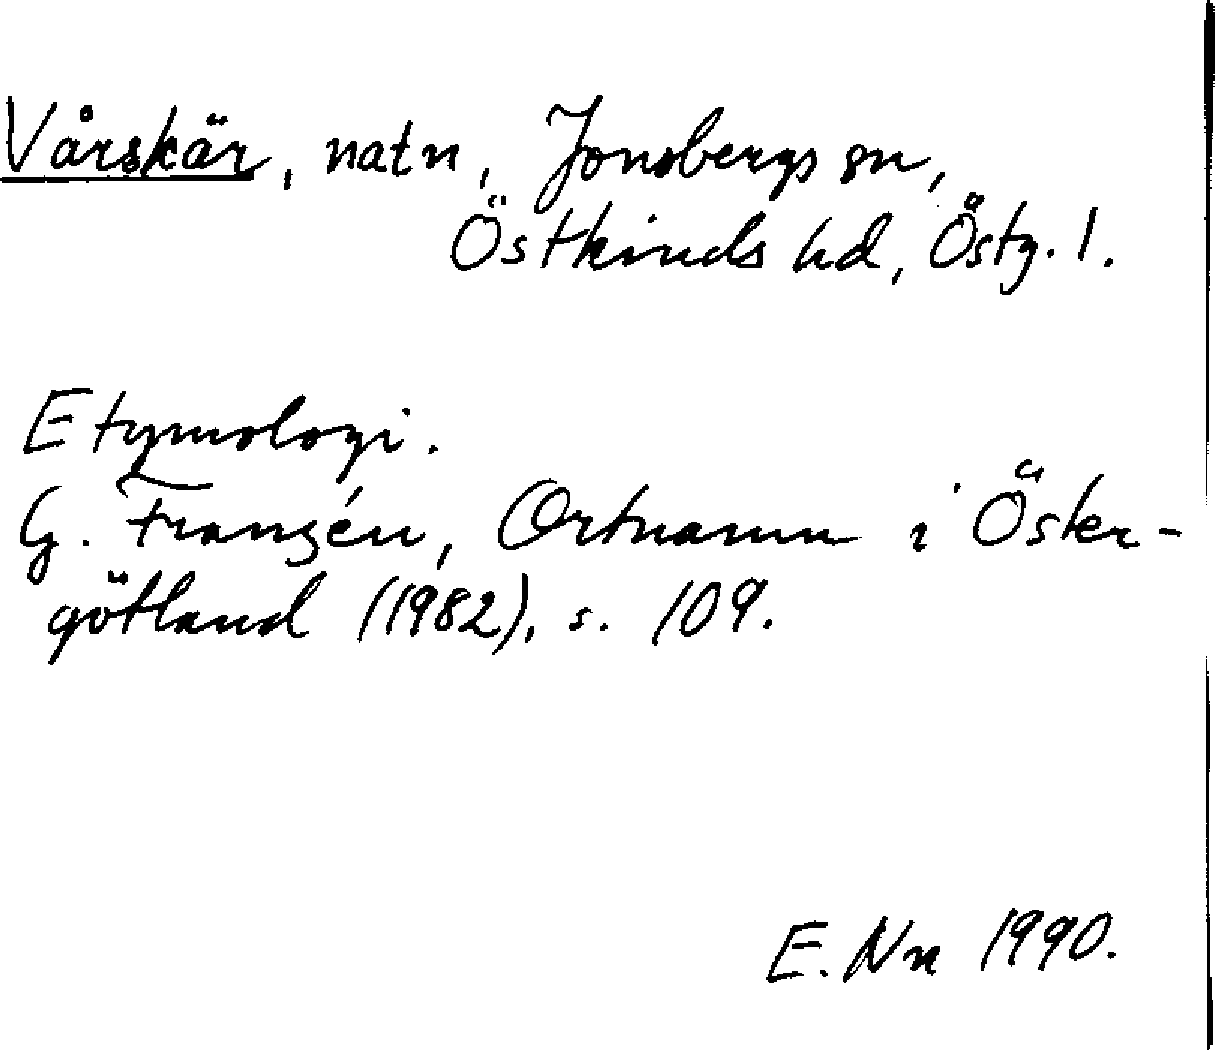 Vårskär, natn, Jonsbergs sn,
Östkinds hd, Östg. l.
Etymologi.
G. Franzén, Ortnamn i Öster-
götland (1982), s. 109.
E. Nn 1990.